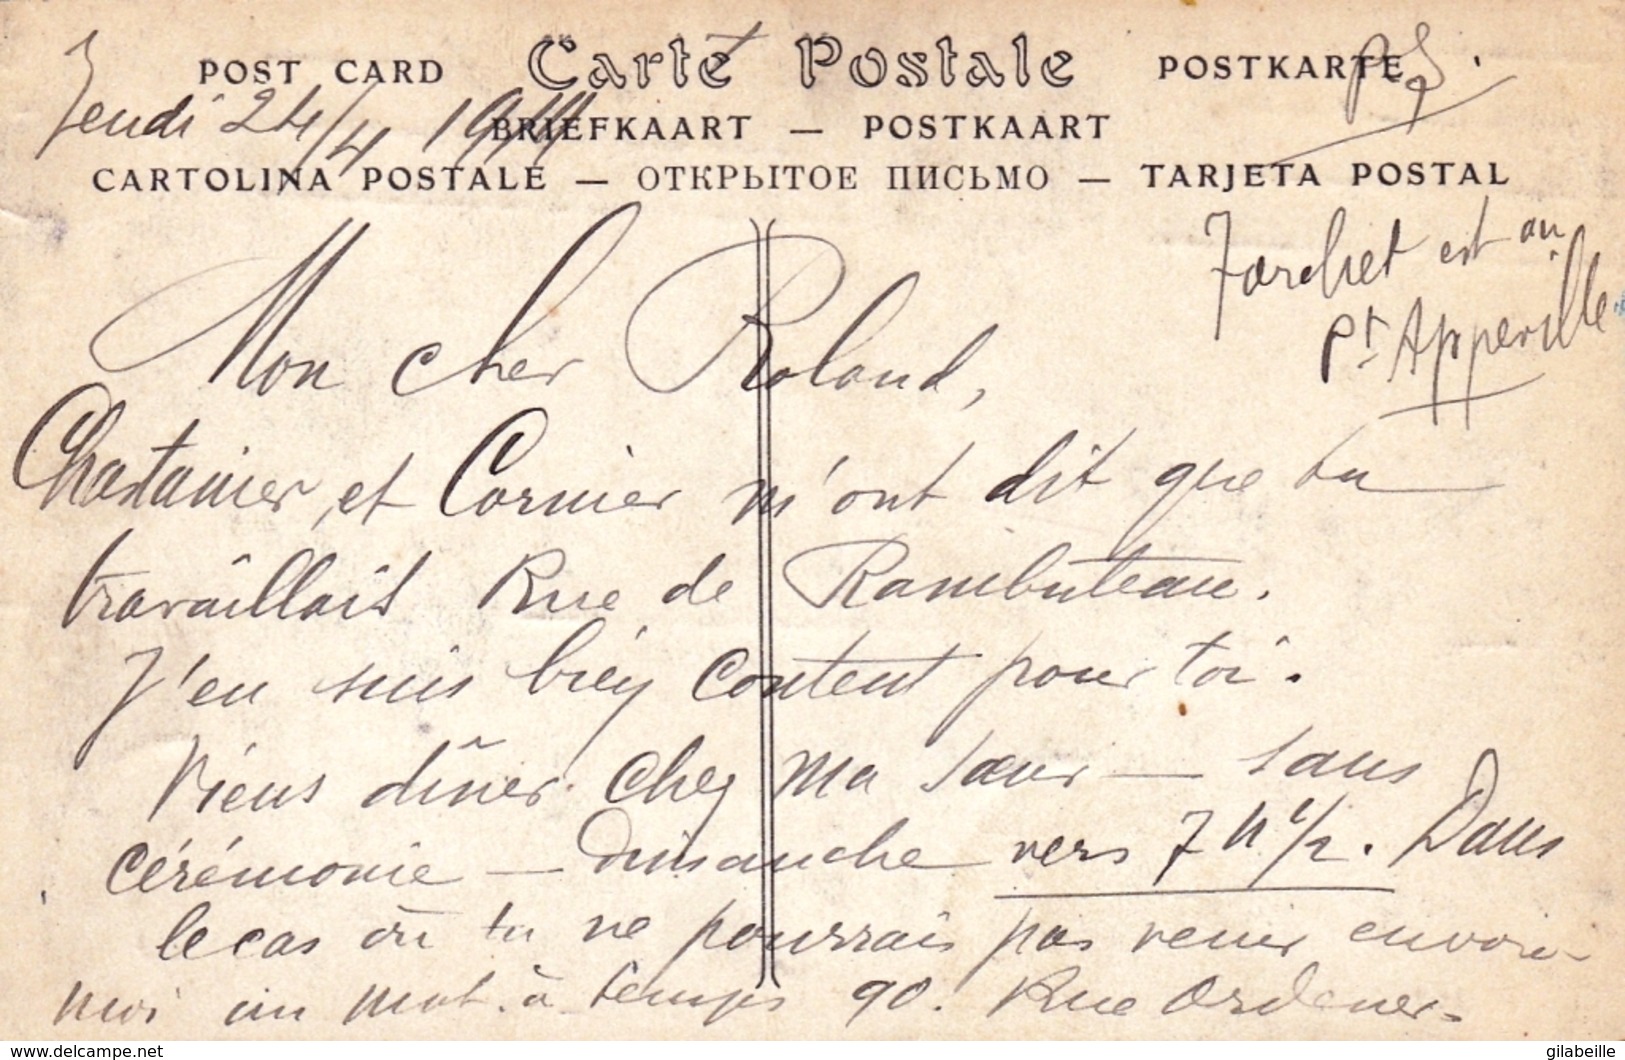 POST CARD Carte Postale POSTKARTE
BRIEFKAART — POSTKAART
CARTOLINA POSTALE — ОТКРЫТОЕ ПИСЬМО — TARJETA POSTAL
Jeudi 24/4 19
PS.
est au
Pt Appeville
Mon cher Roland,
Chastanier, et Cornier m'ont dit que tu
travaillais Rue de Rambuteau.
J'en suis bien content pour toi.
Viens dîner chez ma sœur — sans
cérémonie — dimanche vers 7 h 1/2. Dans
le cas où tu ne pourrais pas venir envoie-
moi un mot à temps 90. Rue Ordener.
www.delcampe.net
gilabeille